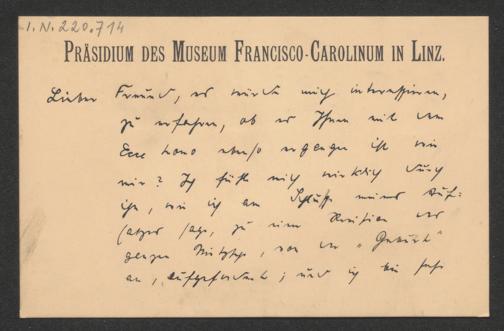 I.N. 220.714
PRÄSIDIUM DES MUSEUM FRANCISCO-CAROLINUM IN LINZ.
Lieber Freund, es würde mich interessieren,
zu erfahren, ob es Ihnen mit dem
Ecce homo ebenso ergangen ist wie
mir? Ich fühle mich wirklich durch
ihn, wie ich am Schlusse meines Auf=
satzes sage, zu einer Revision des
ganzen Nietzsche, von der „Geburt"
an, aufgefordert; und ich bin sehr